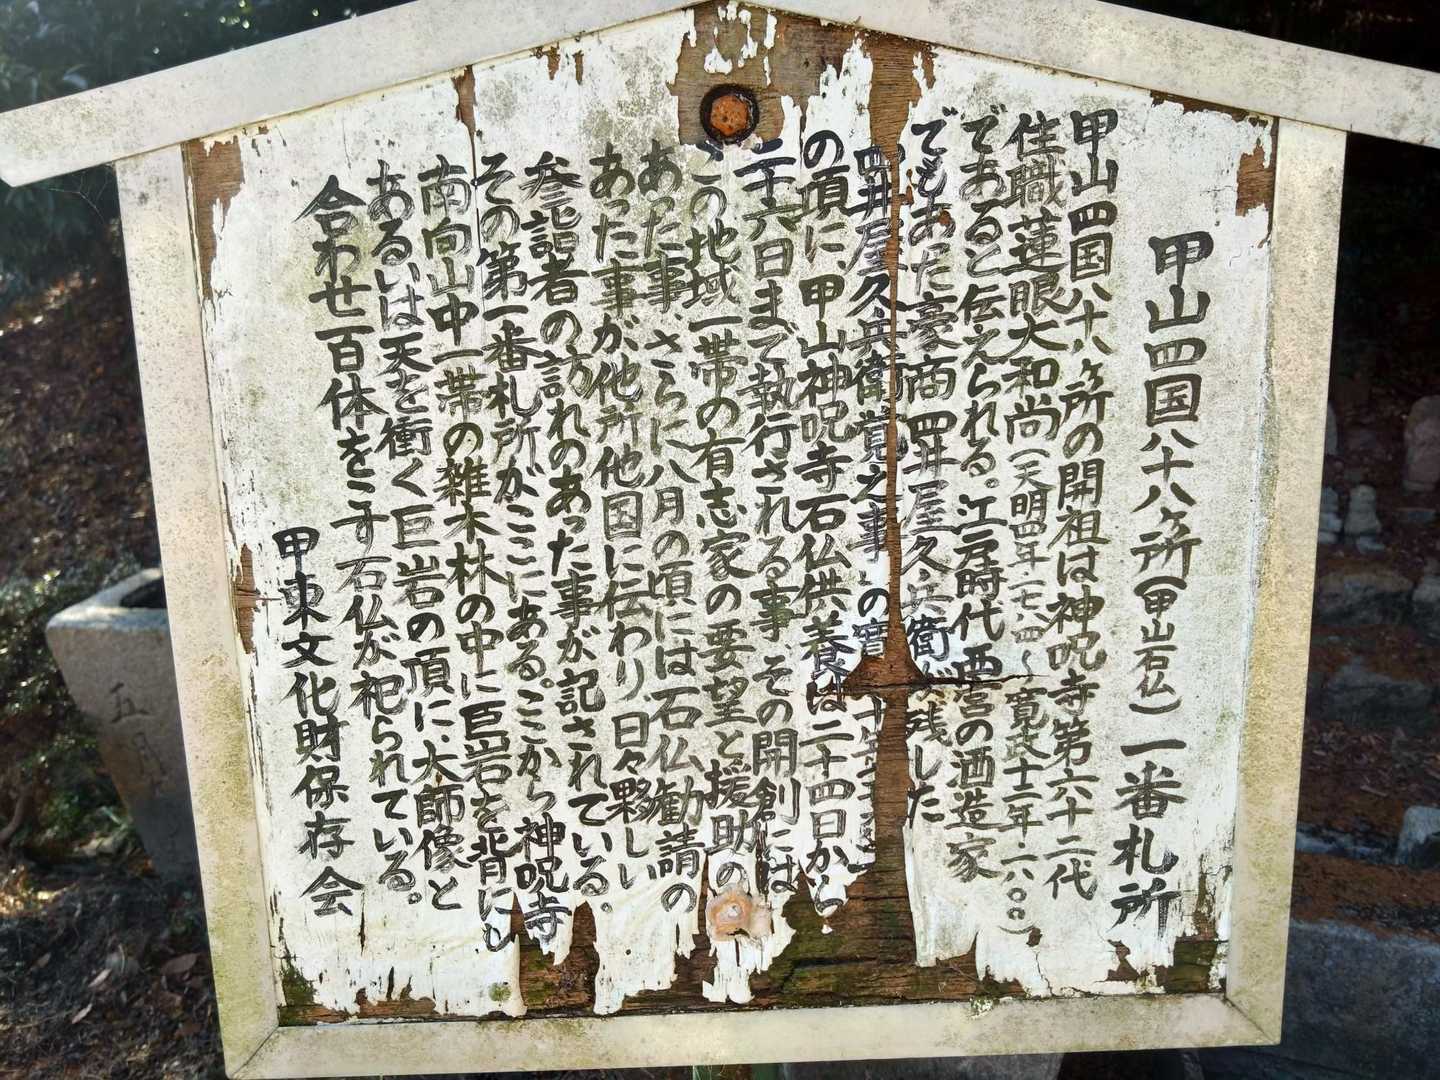 甲山四国八十八ヶ所(甲山石仏)一番札所
甲山四国八十八ヶ所の開祖は神呪寺第六十二代
住職蓮眼大和尚(天明四年一七八四~寛政十二年一八〇〇)
であると伝えられる。江戸時代 西宮の酒造家
でもあった豪商 四井屋久兵衛が残した
四井屋久兵衛覚之事」の
の頃に、甲山神呪寺石仏供養は二十四日から
二十六日まで執行される事、その開創には
この地域一帯の有志家の要望と援助の
あった事、さらに八月の頃には石仏勧請の
あった事が他所他国に伝わり日々夥しい
参詣者の訪れのあった事が記されている。
その第一番札所がここにある。ここから神呪寺
南向山中一帯の雑木林の中に巨岩を背にし
あるいは天を衝く巨岩の頂に、大師像と
合わせ百体をこす石仏が祀られている。
甲東文化財保存会
五